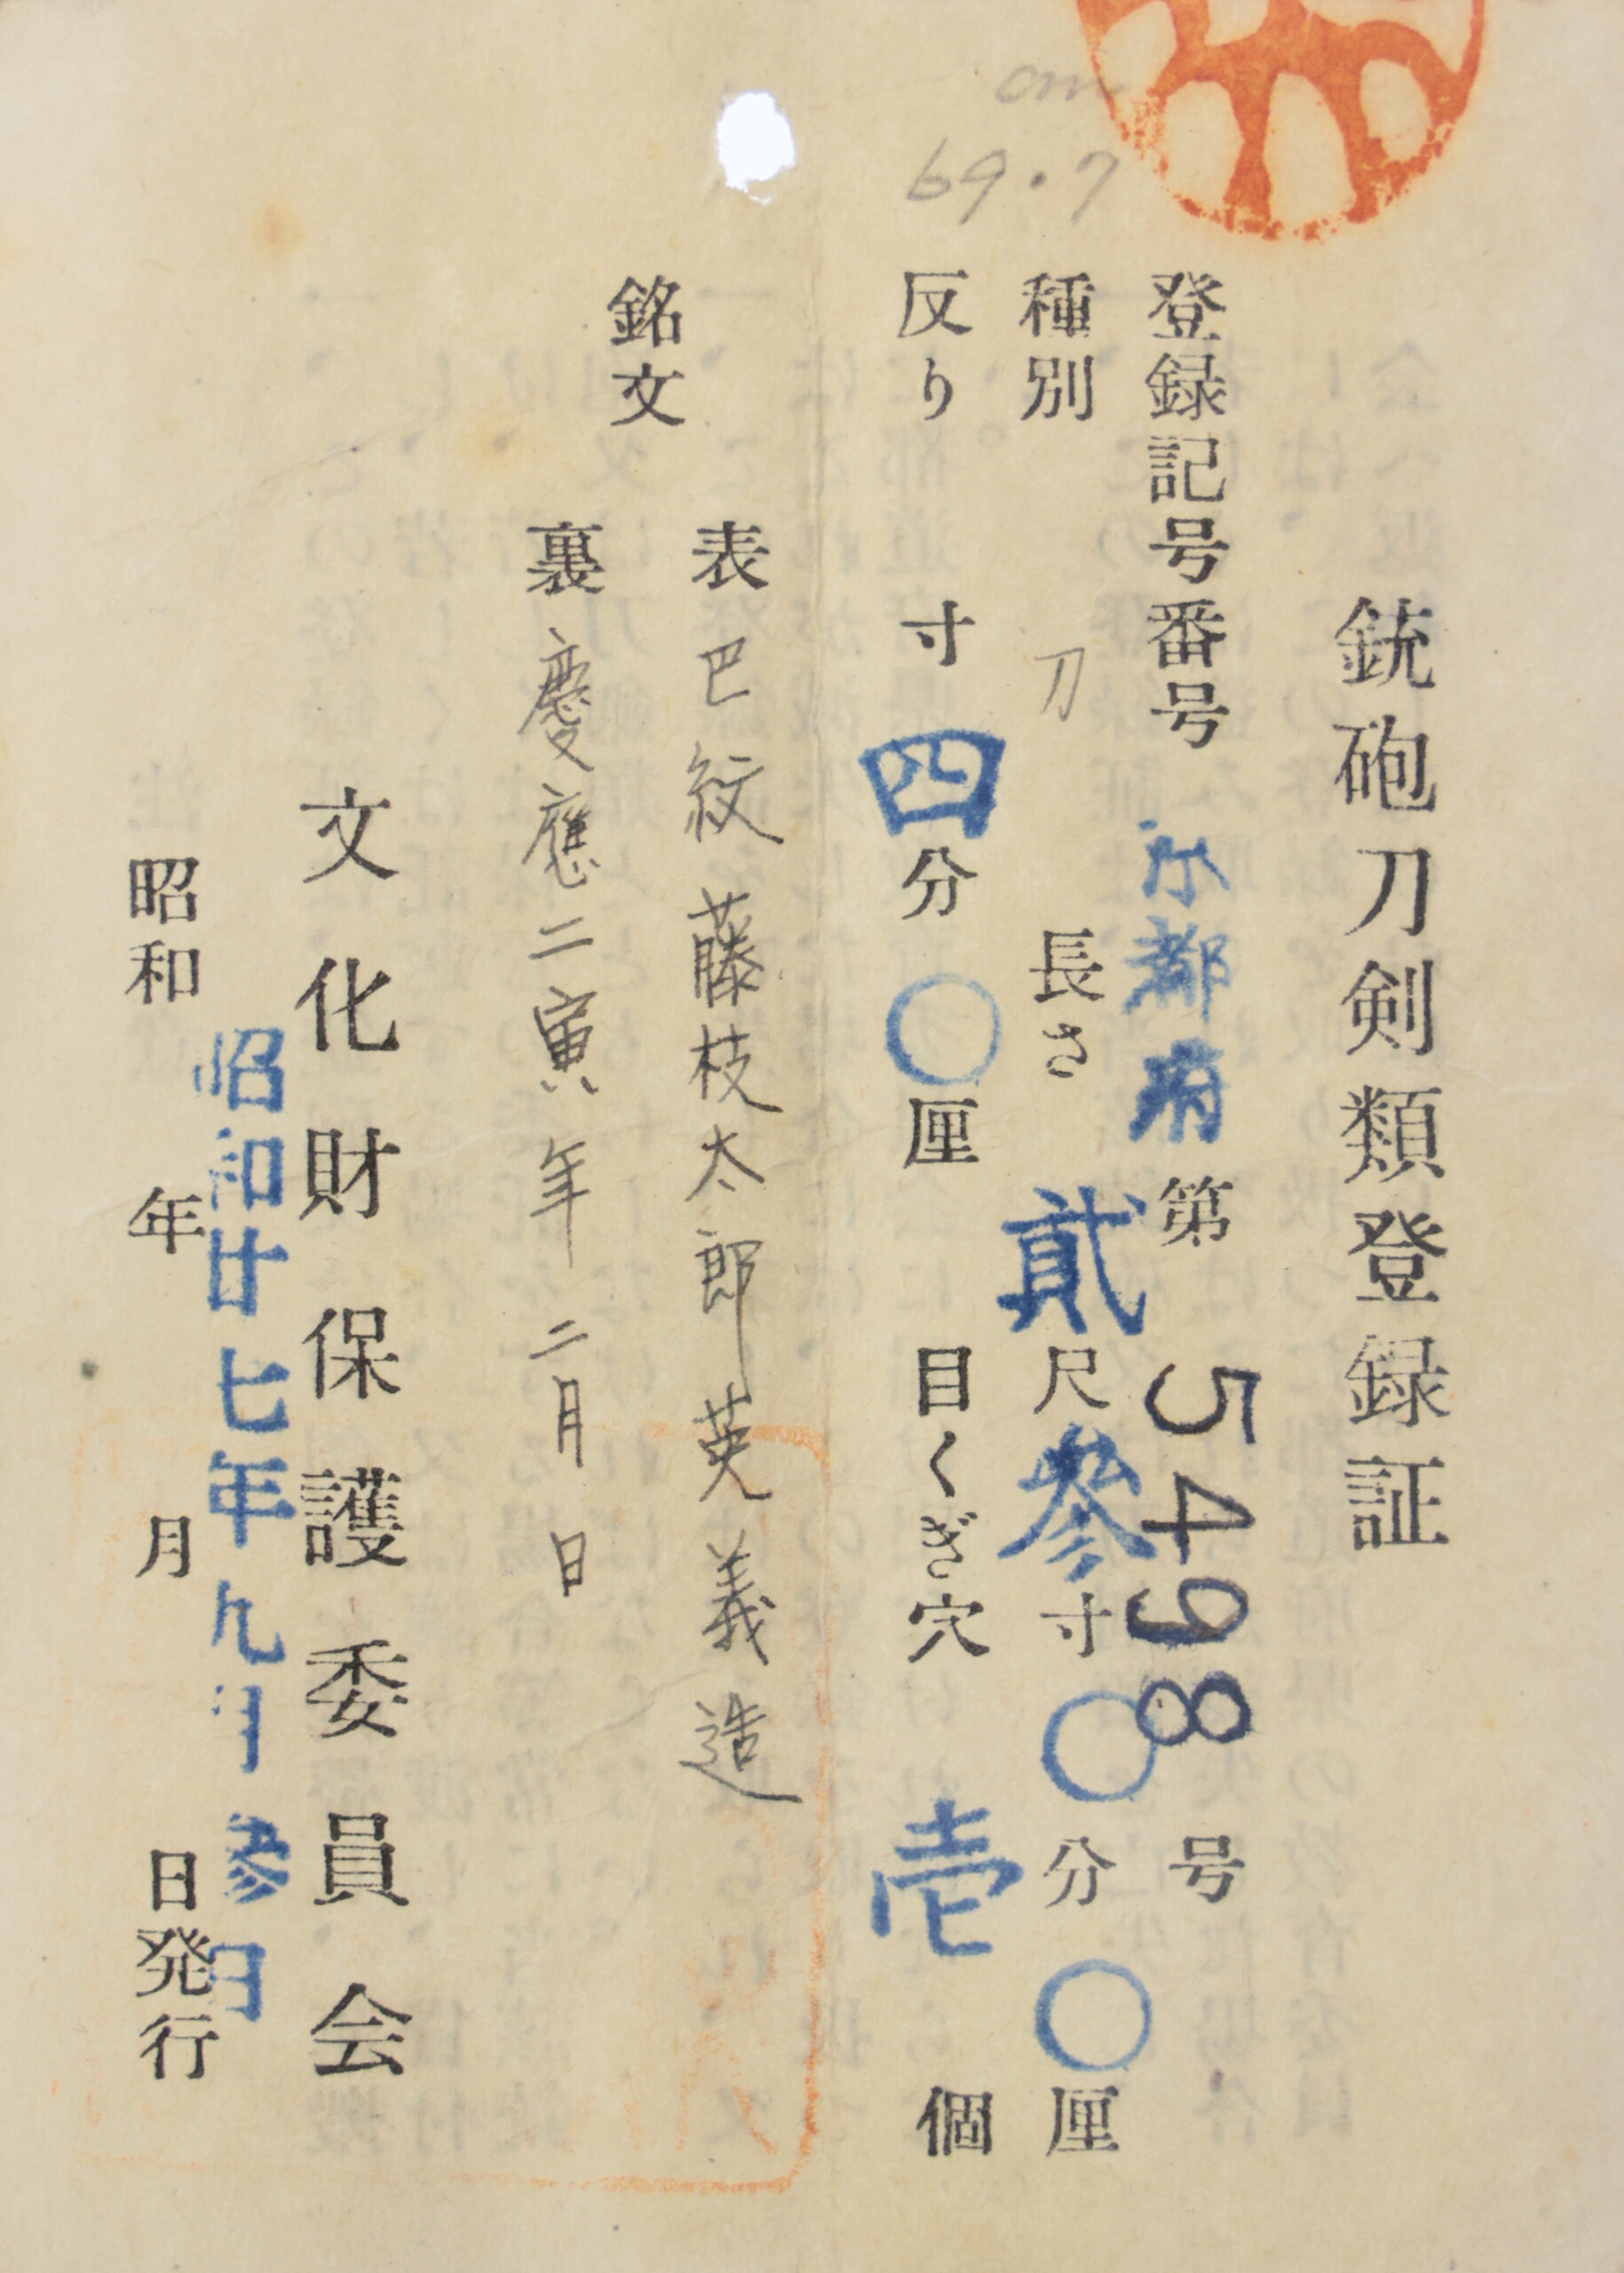 銃砲刀剣類登録証
登録記号番号 京都府 第 5498 号
種別 刀 長さ 貳尺参寸〇分〇厘
cm
69.7
反り 寸四分〇厘 目くぎ穴 壱個
銘文
表 巴紋 藤枝太郎英義造
裏 慶應二寅年二月日
文化財保護委員会
昭和廿七年九月参日
昭和 年 月 日発行